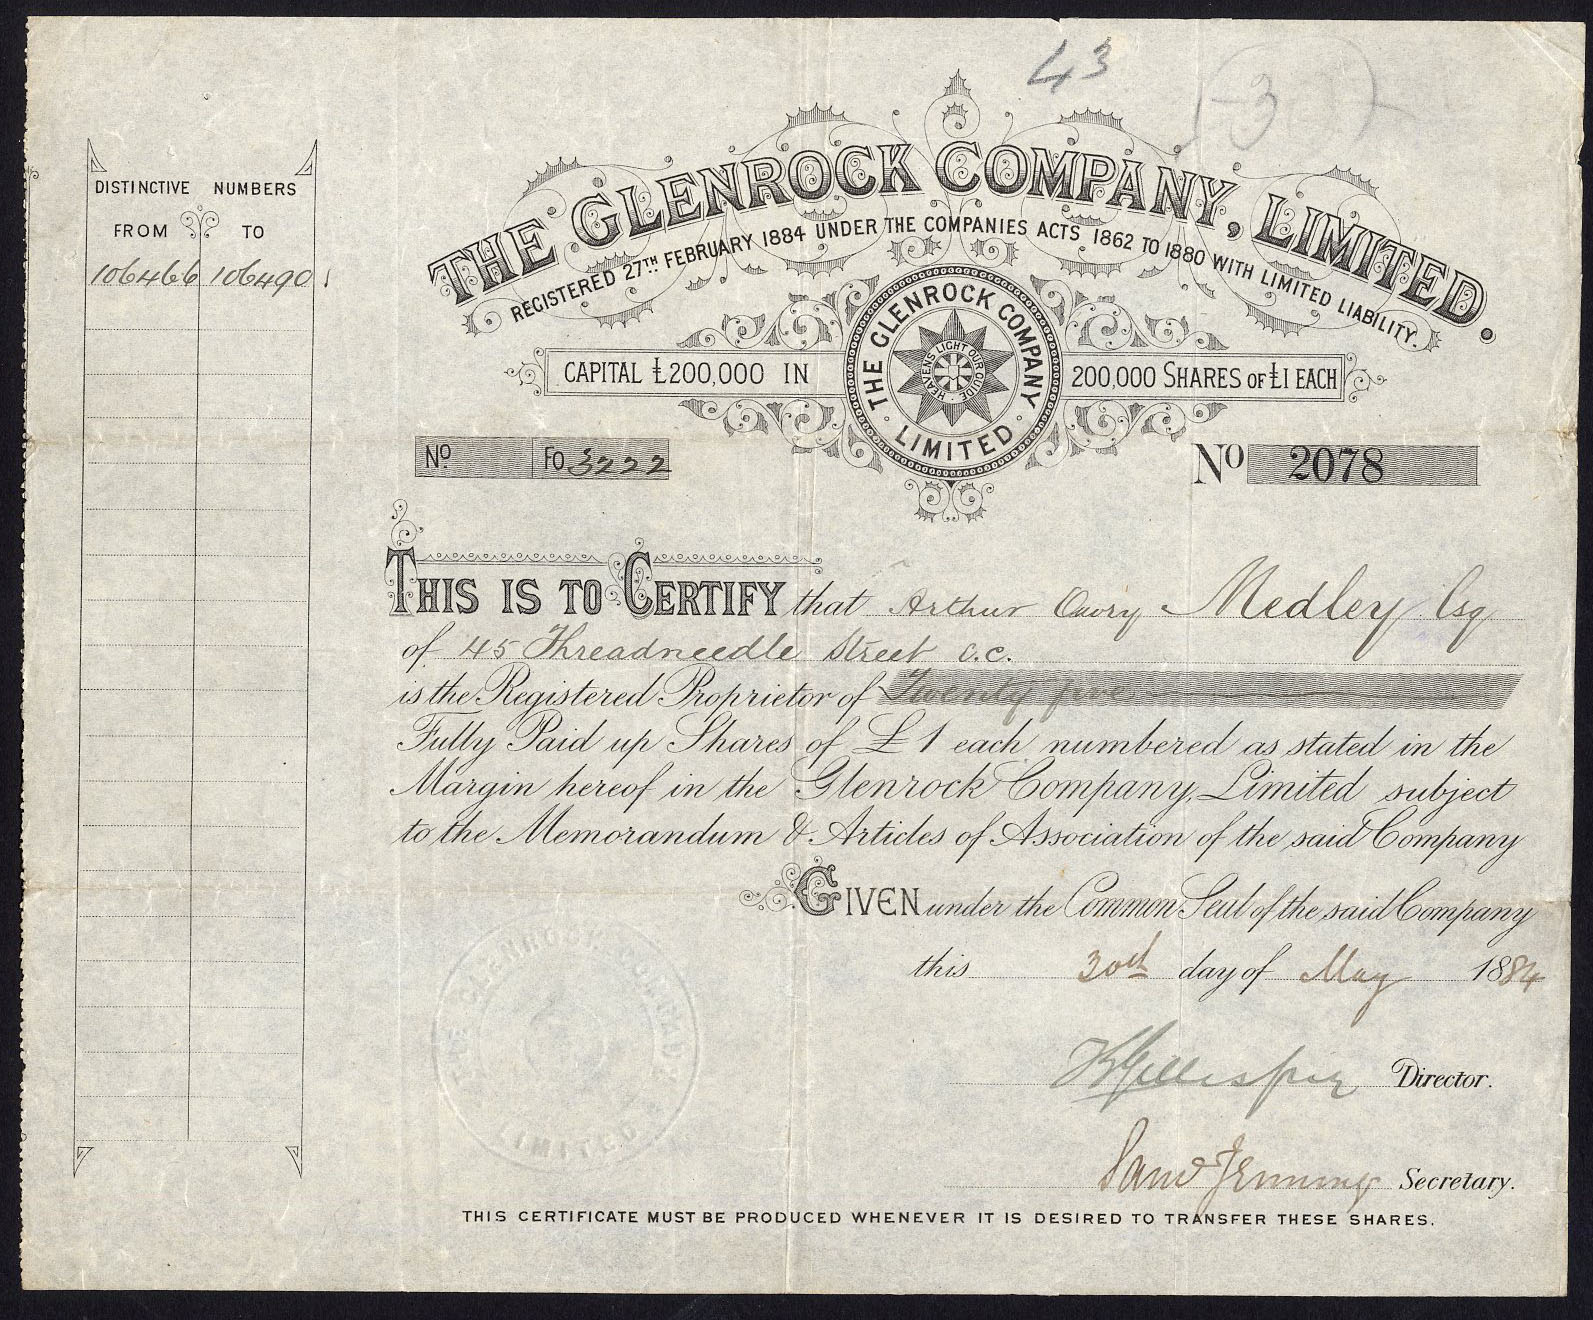 43
3
THE GLENROCK COMPANY, LIMITED.
REGISTERED 27TH FEBRUARY 1884 UNDER THE COMPANIES ACTS 1862 TO 1880 WITH LIMITED LIABILITY.
DISTINCTIVE NUMBERS
FROM TO
106466 106490
CAPITAL £200,000 IN 200,000 SHARES OF £1 EACH
THE GLENROCK COMPANY LIMITED
HEAVENS LIGHT OUR GUIDE
No FO 3222
No 2078
THIS IS TO CERTIFY that Arthur Medley Esq
of 45 Threadneedle Street E.C.
is the Registered Proprietor of Twenty five
Fully Paid up Shares of £1 each numbered as stated in the
Margin hereof in the Glenrock Company, Limited subject
to the Memorandum & Articles of Association of the said Company
GIVEN under the Common Seal of the said Company
this 30th day of May 1884
THE GLENROCK COMPANY LIMITED
Gillespie Director.
Saml Jennings Secretary.
THIS CERTIFICATE MUST BE PRODUCED WHENEVER IT IS DESIRED TO TRANSFER THESE SHARES.